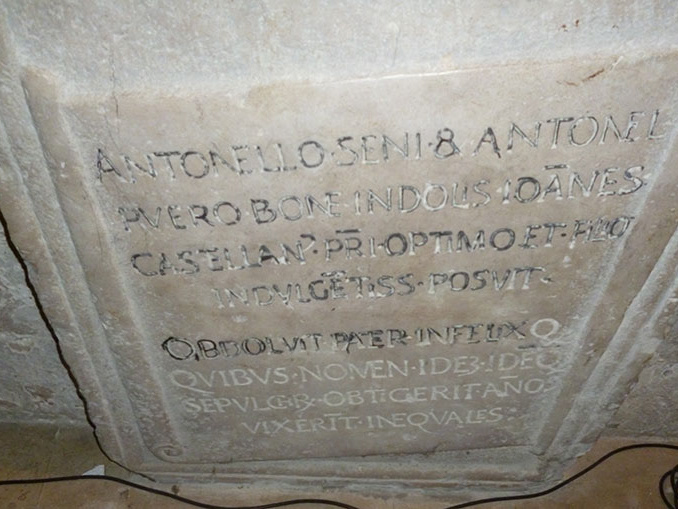 ANTONELLO·SENI·&·ANTONEL
PVERO BONE INDOLIS·IOĀNES
CASTELLANꝰ·PR̄I·OPTIMO ET·FILIO
INDVLGĒTISS·POSVIT·
OBDOLVIT PATER·INFELIX Q
QVIBVS·NOMEN·IDEꝫ·IDEQ̄
OBTIGERIT AÑO
VIXERĪT·INEQVALES·